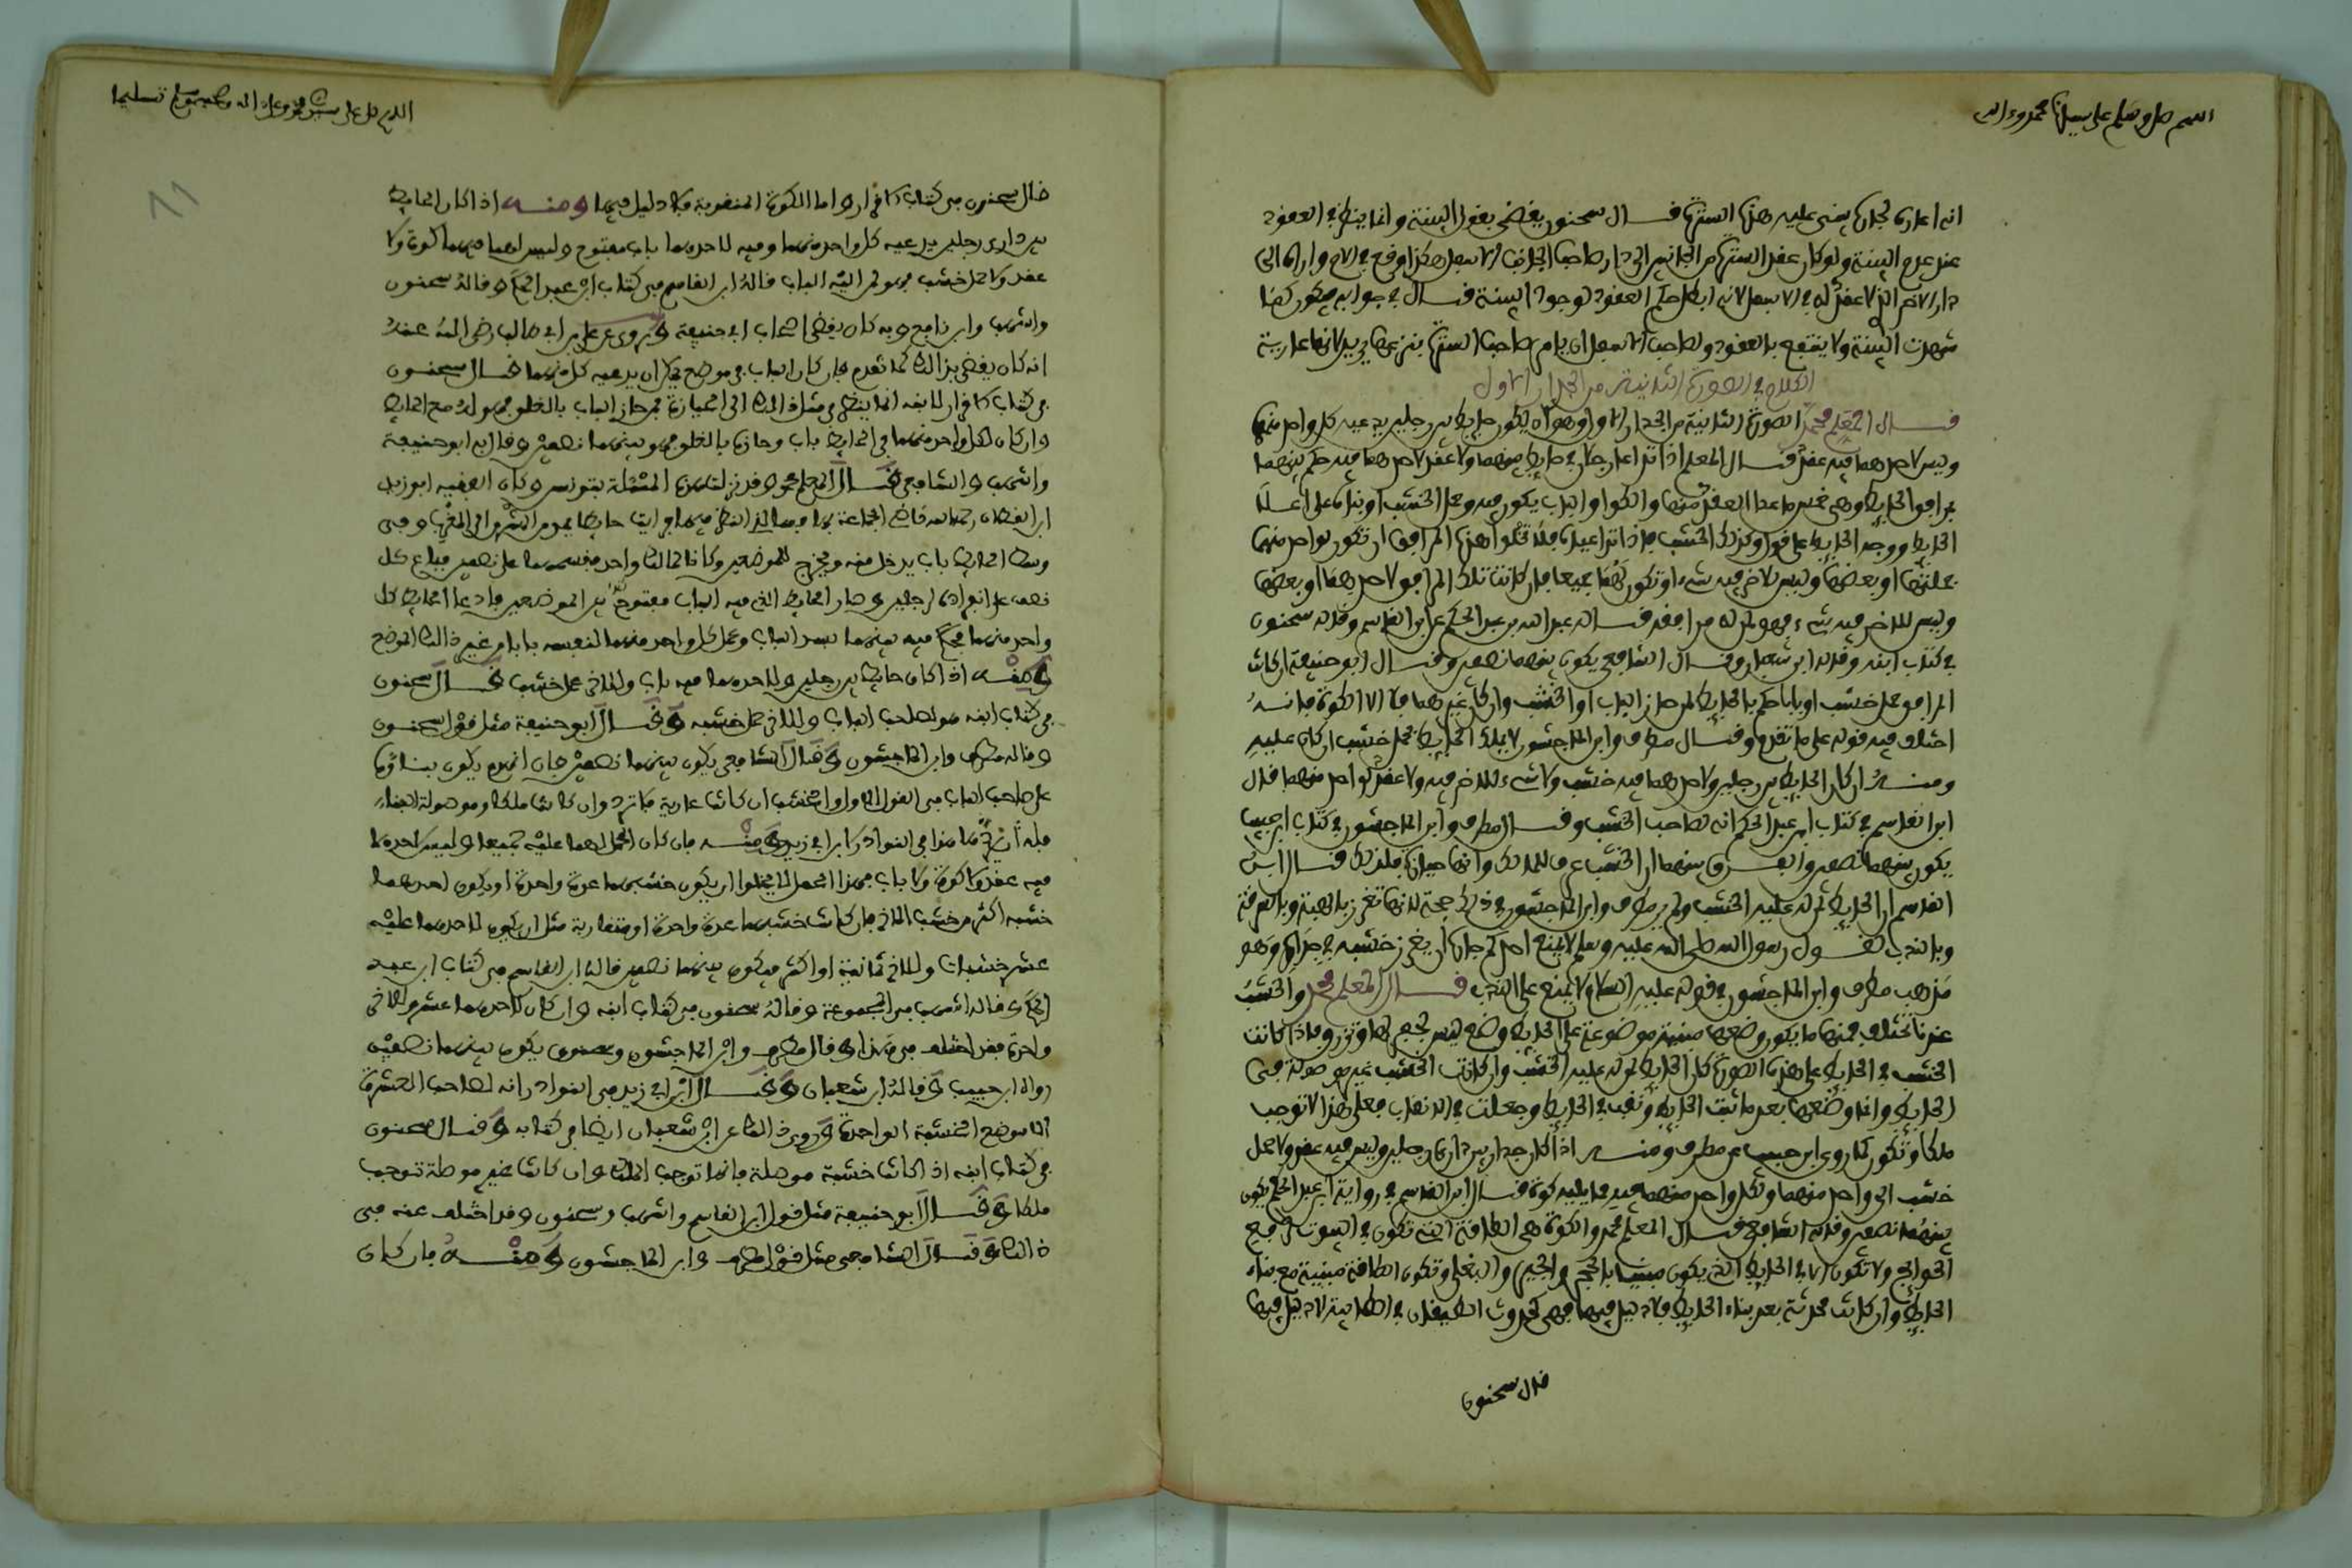 اللهم صل وسلم على سيدنا محمد وءاله
انه اعاره لجاره يبنى عليه هذه السترة قال سحنون يقضى بقول البينة وانما ينظر في العقود
عند عدم البينة ولو كان عقد السترة من الجانبين الى دار صاحب الجانب الاسفل هكذا وقع في الام واراه الى
دار الاخر الذي لا عقد له في الاسفل لانه ابطل حكم العقود لوجود البينة قال في جوابه
شهدت البينة ولا ينتفع بالعقود ولصاحب الاسفل ان يامر صاحب السترة ينزعها يريد لانها عارية
الكلام في الصورة الثانية من الجدار الاول
قال المعلم محمد الصورة الثانية من الجدار الاول وهو ان يكون حايط بين رجلين يدعيه كل واحد منهما
وليس لاحدهما فيه عقد قال المعلم اذا تداعا رجلان في حايط بينهما ولا عقد لاحدهما فيه حكم بينهما
بمرافق الحايط وهي خمس ما عدا العقد منها والكوا والباب يكون فيه وحمل الخشب او بناء على اعلا
الحايط ووجه الحايط على قول وكذلك الخشب فاذا تداعياه فلا تخلوا هذه المرافق ان تكون لواحد منهما
جملتها او بعضها وليس للاخر فيه شيء او تكون لهما جميعا فان كانت تلك المرافق لاحدهما او بعضها
وليس للاخر فيه شيء فهو لمن له مرافقه قاله عبد الله بن عبد الحكم عن ابن القاسم وقاله سحنون
في كتاب ابنه وقاله ابن شعبان وقال الشافعي يكون بينهما نصفين وقال ابو حنيفة ان كانت
المرافق حمل خشب او بابا حكم بالحايط لمن حاز الباب او الخشب وان كان غيرهما فلا الا الكوة فانه
اختلف فيه قوله على ما تقدم وقال مطرف وابن الماجشون لا يملك الحايط بحمل خشب ان كان عليه
ومنه ان كان الحايط بين رجلين ولاحدهما فيه خشب ولا شيء للاخر فيه ولا عقد لواحد منهما قال
ابن القاسم في كتاب ابن عبد الحكم انه لصاحب الخشب وقال مطرف وابن الماجشون في كتاب ابن حبيب
يكون بينهما نصفين والفرق بينهما ان الخشب عرف للملك وانها حيازة فلذلك قال ابن
القاسم ان الحايط لمن له عليه الخشب ولم ير مطرف وابن الماجشون في ذلك حجة لانها تغرز بالهبة وبالسرقة
وبالندب لقول رسول الله صلى الله عليه وسلم لا يمنع احدكم جاره ان يغرز خشبه في جداره وهو
مذهب مطرف وابن الماجشون في قوله عليه السلام لا يمنع على الندب قال المعلم محمد والخشب
عندنا تختلف فمنها ما يكون وضعها مبنية موضوعة على الحايط وضع ليس فاذا كانت
الخشب في الحايط على هذه الصورة كان الحايط لمن له عليه الخشب وان كانت الخشب غير موصولة في
الحايط وانما وضعها بعد ما ثقب الحايط وثقب في الحايط وجعلت في الانقاب فعلى هذا لا توجب
ملكا وتكون كما روى ابن حبيب عن مطرف ومنه اذا كان جدار بين داري رجلين وليس فيه عقد ولا حمل
خشب الى واحد منهما ولكل واحد منهما فيه مما يليه كوة قال ابن القاسم في رواية ابن عبد الحكم يكون
بينهما نصفين وقاله الشافعي قال المعلم محمد والكوة هي الطاقة التي تكون في البيوت لرفع
الحوايج ولا تكون الا في الحايط الذي يكون مبنيا بالحجر والجير والبغلي وتكون الطاقة مبنية مع بناء
الحايط وان كانت محدثة بعد بناء الحايط فلا دليل فيها فهي كحدوث الطيقان في الطابية لا دليل فيها
قال سحنون
اللهم صل على سيدنا محمد وعلى اله وصحبه وسلم تسليما
قال سحنون في كتاب الاقرار واما الكوة المنقوبة فلا دليل فيها ومنه اذا كان الحايط
بين داري رجلين يدعيه كل واحد منهما وفيه لاحدهما باب مفتوح وليس لهما فيهما كوة ولا
عقد ولا حمل خشب فهو لمن اليه الباب قاله ابن القاسم في كتاب ابن عبد الحكم وقاله سحنون
واشهب وابن نافع وبه كان يقضى اصحاب ابي حنيفة ويروى عن علي بن ابي طالب رضي الله عنه
انه كان يقضى بذلك كما تقدم فان كان الباب في موضع يمكن ان يدعيه كل منهما قال سحنون
في كتاب الاقرار لابنه انما ينظر في مثل ذلك الى الحيازة فمن حاز الباب بالغلق فهو له مع الحايط
وان كان لكل واحد منهما في الحايط باب وحازه بالغلق فهو بينهما نصفين وقال به ابو حنيفة
واشهب والشافعي قال المعلم محمد وقد نزلت هذه المسئلة بتونس وكان الفقيه ابو زيد
ابن القطان رحمه الله قاضي الجماعة بها فرايت حايطا يمر من الشرق الى المغرب وفي
وسط الحايط باب يدخل منه ويخرج للموضعين وكانا لمالك واحد فقسمهما على نصفين فباع كل
نصف على انفراده لرجلين وصار الحايط الذي فيه الباب مفتوح بين الموضعين فادعا الحايط كل
واحد منهما فحكم فيه بينهما بسد الباب وعمل كل واحد منهما لنفسه بابا من غير ذلك الموضع
ومنه اذا كان حايط بين رجلين ولاحدهما فيه باب وللاخر حمل خشب قال سحنون
في كتاب ابنه هو لصاحب الباب وللاخر حمل خشبه وقال ابو حنيفة مثل قول سحنون
وقاله مطرف وابن الماجشون وقال الشافعي يكون بينهما نصفين فان انهدم يكون بناؤها
على صاحب الباب في القول الاول والخشب ان كانت عارية فلا ترد وان كانت ملكا وموصولة البناء
فله ان يردها هذا في النوادر لابن ابي زيد ومنه فان كان الحمل لهما عليه جميعا وليس لاحدهما
فيه عقد ولا كوة ولا باب فهذا الحمل لا يخلوا ان يكون خشبهما عدة واحدة او يكون احدهما
خشبه اكثر من خشب الاخر فان كانت خشبهما عدة واحدة او متقاربة مثل ان يكون لاحدهما عليه
عشر خشبات وللاخر ثمانية او اكثر فيكون بينهما نصفين قاله ابن القاسم في كتاب ابن عبد
الحكم وقاله اشهب في المجموعة وقاله سحنون في كتاب ابنه وان كان لاحدهما عشر وللاخر
واحدة فقد اختلف في هذا وقال مطرف وابن الماجشون وسحنون يكون بينهما نصفين
رواه ابن حبيب وقاله ابن شعبان وقال ابن ابي زيد في النوادر انه لصاحب العشرة
الا موضع الخشبة الواحدة وروى ذلك عن ابن شعبان ايضا في كتابه وقال سحنون
في كتاب ابنه اذا كانت خشبة موصلة فانها توجب الملك وان كانت غير موصلة توجب
ملكا وقال ابو حنيفة مثل قول ابن القاسم واشهب وسحنون وقد اختلف عنه في
ذلك وقال الشافعي مثل قول مطرف وابن الماجشون ومنه فان كان